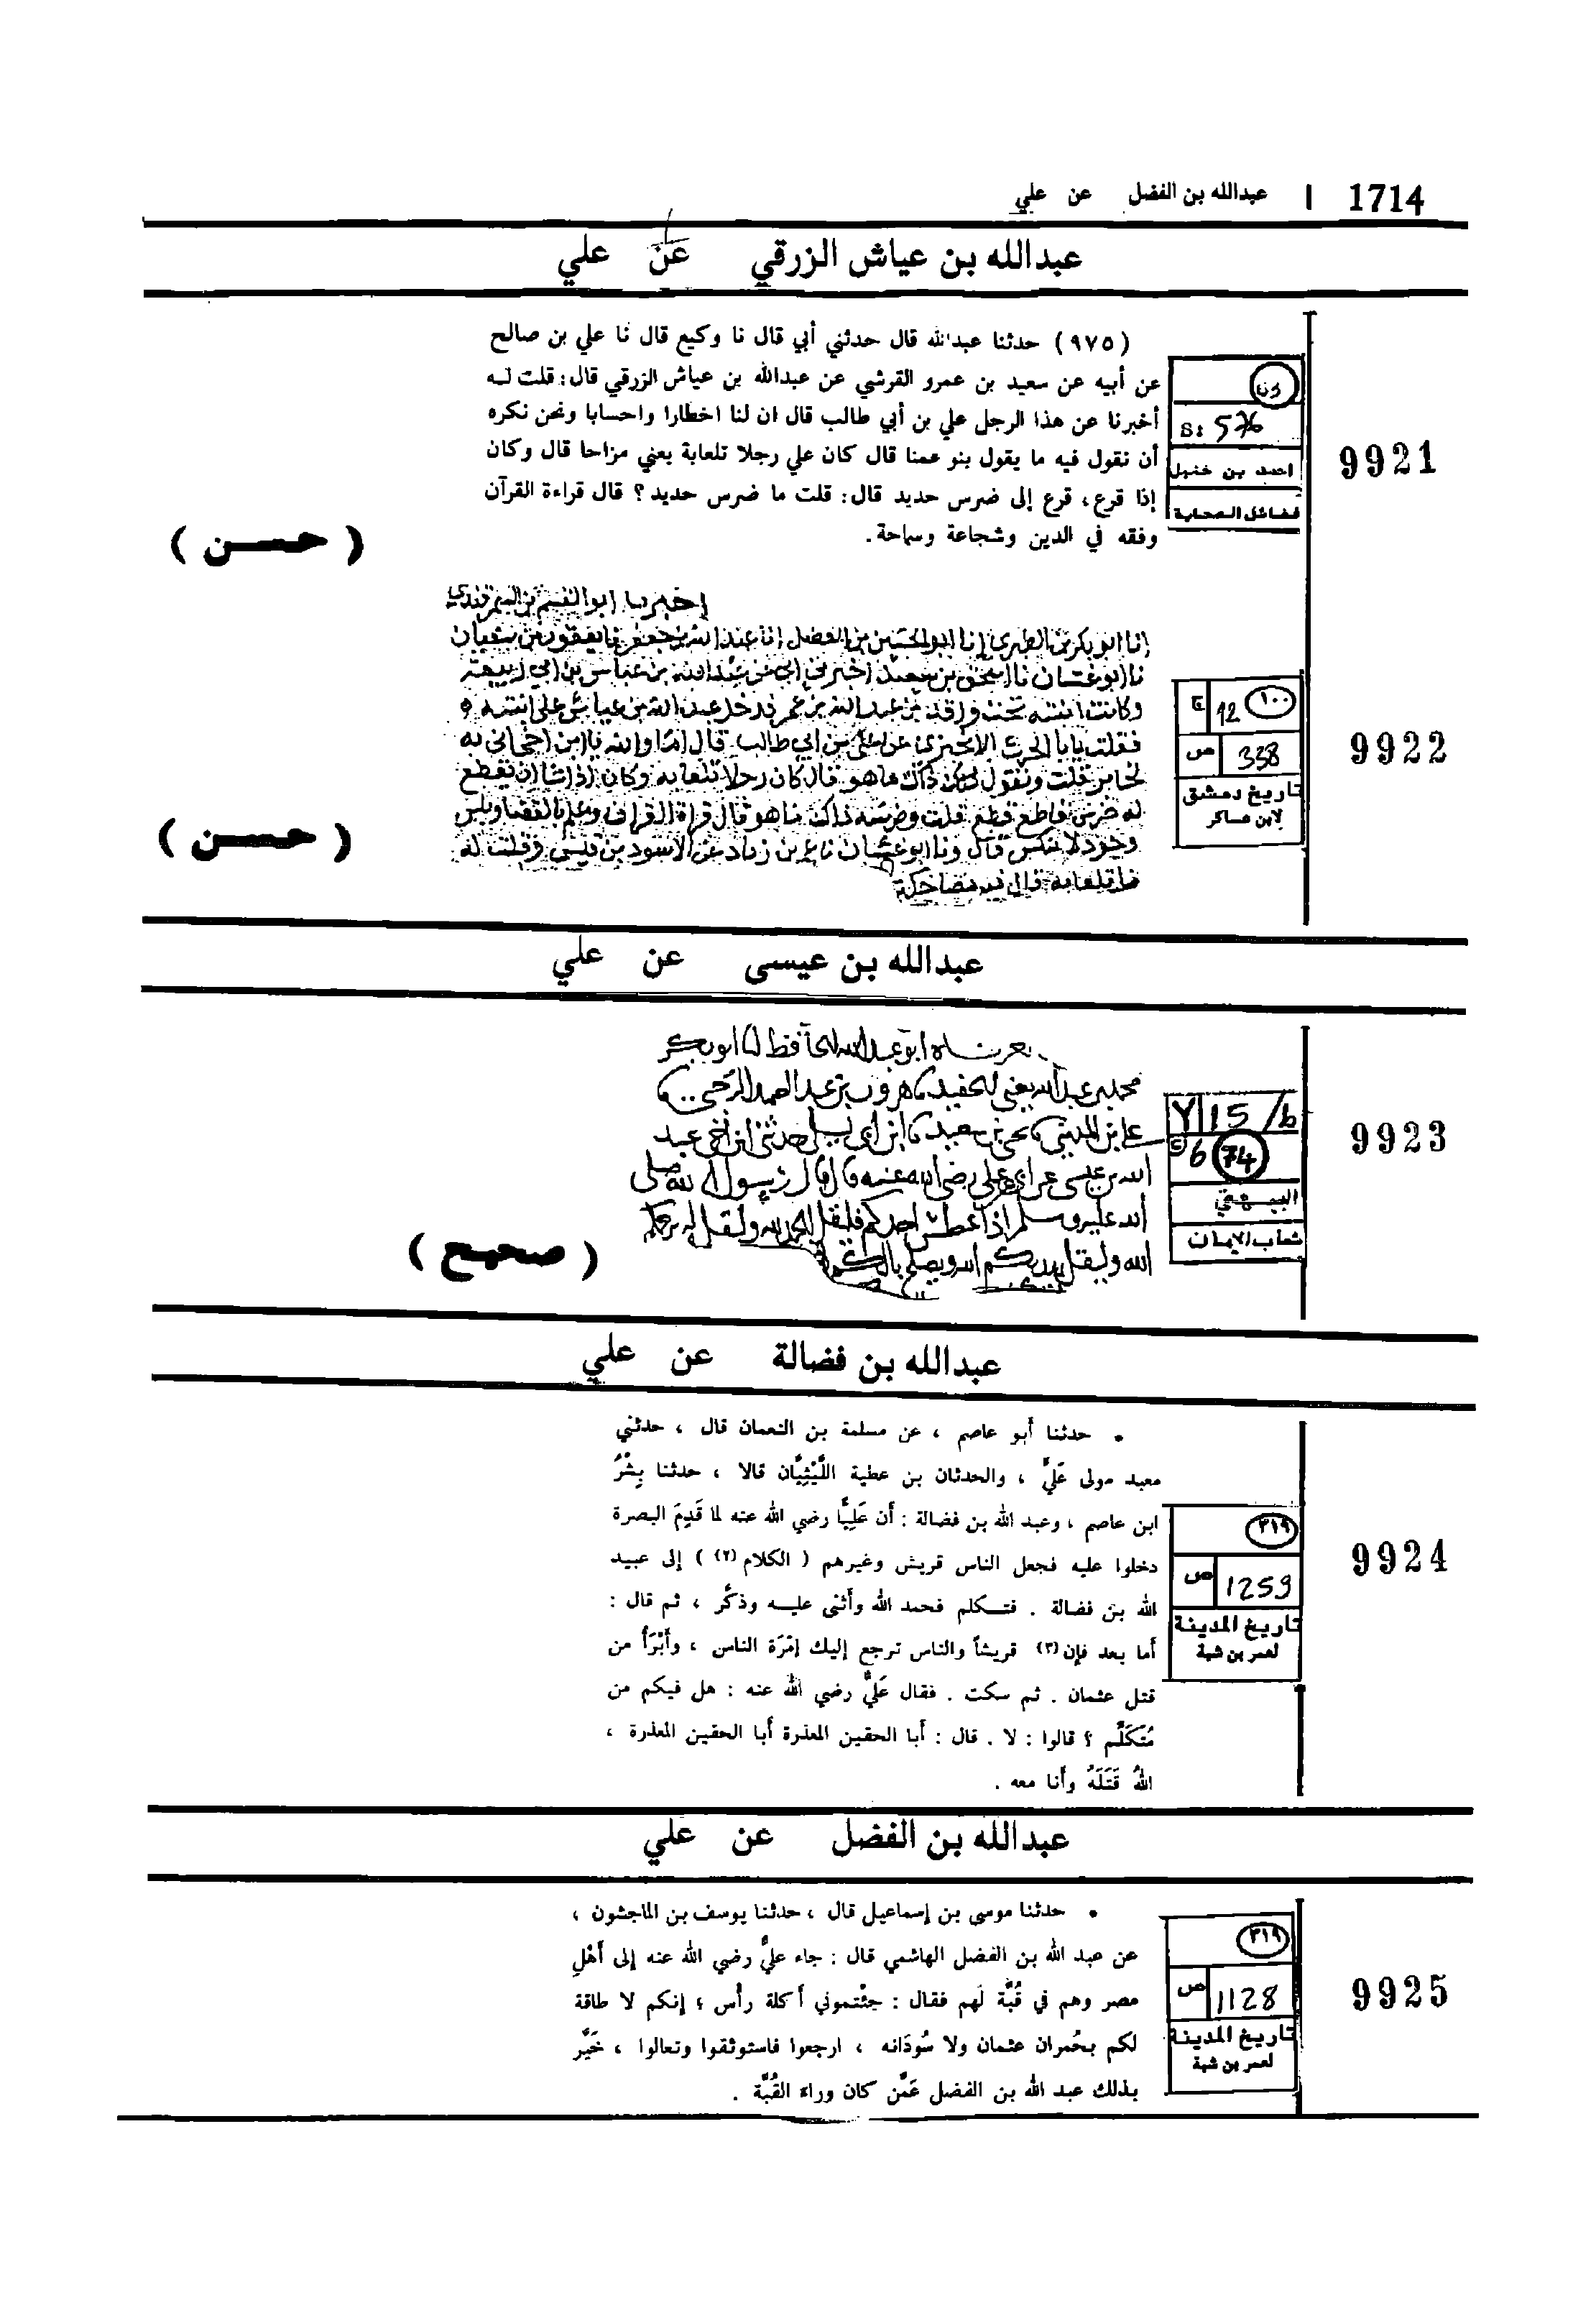 1714 | عبدالله بن الفضل عن علي
عبدالله بن عياش الزرقي عن علي
(٩٧٥) حدثنا عبدالله قال حدثني أبي قال نا وكيع قال نا علي بن صالح
عن أبيه عن سعيد بن عمرو القرشي عن عبدالله بن عياش الزرقي قال: قلت لـه
أخبرنا عن هذا الرجل علي بن أبي طالب قال ان لنا اخطارا واحسابا ونحن نكره
أن نقول فيه ما يقول بنو عمنا قال كان علي رجلا تلعابة يعني مزاحا قال وكان
إذا قرع، قرع إلى ضرس حديد قال: قلت ما ضرس حديد؟ قال قراءة القرآن
وفقه في الدين وشجاعة وسماحة.
S: 576
احمد بن حنبل
فضائل الصحابة
9921
( حسن )
اخبرنا ابو القسم بن السمرقندي
انا ابو بكر بن الطبري انا ابو الحسين بن الفضل انا عبد الله بن جعفر نا يعقوب بن سفيان
نا ابو غسان نا اسحق بن سعيد اخبرني ابي عن عبد الله بن عياش بن ابي ربيعة
وكانت ابنته تحت واقد بن عبد الله بن عمر فدخل عبد الله بن عياش على ابنته
فقلت يابا الحرث الا تخبرني عن علي بن ابي طالب قال اما والله يا ابن اخي اني به
قلت ونقول ذاك ما هو قال كان رجلا تلعابه وكان اذا شا ان يقطع
له ضرس قاطع قطع قلت وضرسه ذاك ما هو قال قراة القران وعلم بالقضا وباس
وجود لا ينكس قال ونا ابو غسان نا عمر بن زياد عن الاسود بن قيس قلت له
ما تلعابه قال فيه مضاحكة
١٠٠
ج 12
ص 338
تاريخ دمشق
لابن عساكر
9922
( حسن )
عبدالله بن عيسى عن علي
ابو عبد الله الحافظ انا ابو بكر
محمد بن عبد الله يعني الحفيد نا هرون بن عبد الصمد الرخي نا
علي بن المديني نا يحيى بن سعيد نا ابن ابي ليلى حدثني ابن اخي عبد
الله بن عيسى عن ابي علي رضي الله عنه قال قال رسول الله صلى
الله عليه وسلم اذا عطس احدكم فليقل الحمد لله وليقل له يرحمكم
الله وليقل يهديكم الله ويصلح بالكم
15/b
ج 6 74
البيهقي
شعاب الايمان
9923
( صحيح )
عبدالله بن فضالة عن علي
• حدثنا أبو عاصم ، عن مسلمة بن النعمان قال ، حدثني
معبد مولى عَليّ ، والحدثان بن عطية اللَّيْثِيَّان قالا ، حدثنا بِشْرُ
ابن عاصم ، وعبد الله بن فضالة : أن عَلِيًّا رضي الله عنه لما قَدِمَ البصرة
دخلوا عليه فجعل الناس قريش وغيرهم ( الكلام (٢) ) إلى عبيد
الله بن فضالة . فتـكلم فحمد الله وأثنى عليـه وذكَّر ، ثم قال :
أما بعد فإن (٣) قريشاً والناس ترجع إليك إمْرَة الناس ، وأَبْرَأُ من
قتل عثمان . ثم سكت . فقال عَليٌّ رضي الله عنه : هل فيكم من
مُتَكَلِّم ؟ قالوا : لا . قال : أبا الحقين المعذرة أبا الحقين المعذرة ،
اللهُ قَتَلَهُ وأنا معه .
٣١٩
ص 1259
تاريخ المدينة
لعمر بن شبة
9924
عبدالله بن الفضل عن علي
• حدثنا موسى بن إسماعيل قال ، حدثنا يوسف بن الماجشون ،
عن عبد الله بن الفضل الهاشمي قال : جاء عليٌّ رضي الله عنه إلى أَهْلِ
مصر وهم في قُبَّة لهم فقال : جئْتموني أكلة رأْس ؛ إنكم لا طاقة
لكم بحُمران عثمان ولا سُودَانه ، ارجعوا فاستوثقوا وتعالوا ، خَبَّر
بذلك عبد الله بن الفضل عَمَّن كان وراءَ القُبَّة .
٣١٩
ص 1128
تاريخ المدينة
لعمر بن شبة
9925